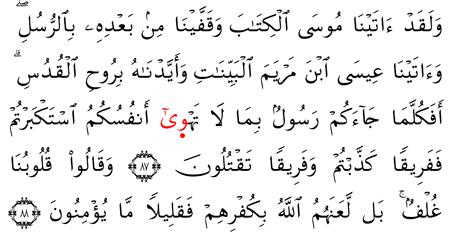 وَلَقَدْ ءَاتَيْنَا مُوسَى ٱلْكِتَٰبَ وَقَفَّيْنَا مِنۢ بَعْدِهِۦ بِٱلرُّسُلِۖ
وَءَاتَيْنَا عِيسَى ٱبْنَ مَرْيَمَ ٱلْبَيِّنَٰتِ وَأَيَّدْنَٰهُ بِرُوحِ ٱلْقُدُسِۗ
أَفَكُلَّمَا جَآءَكُمْ رَسُولٌۢ بِمَا لَا تَهْوِىٰٓ أَنفُسُكُمُ ٱسْتَكْبَرْتُمْ
فَفَرِيقًا كَذَّبْتُمْ وَفَرِيقًا تَقْتُلُونَ ٨٧ وَقَالُوا۟ قُلُوبُنَا
غُلْفٌۢۚ بَل لَّعَنَهُمُ ٱللَّهُ بِكُفْرِهِمْ فَقَلِيلًا مَّا يُؤْمِنُونَ ٨٨